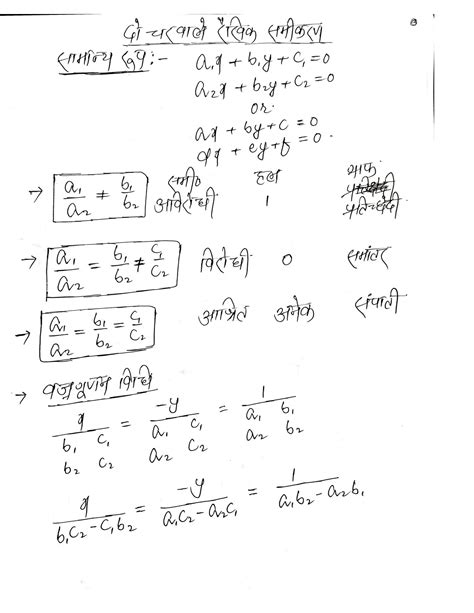 दो चर वाले रैखिक समीकरण
सामान्य रूप:- a₁x + b₁y + c₁ = 0
a₂x + b₂y + c₂ = 0
or
ax + by + c = 0
dx + ey + f = 0
समी० हल ग्राफ
→ a₁/a₂ ≠ b₁/b₂ अविरोधी 1 प्रतिच्छेदी
→ a₁/a₂ = b₁/b₂ ≠ c₁/c₂ विरोधी 0 समांतर
→ a₁/a₂ = b₁/b₂ = c₁/c₂ आश्रित अनेक संपाती
→ वज्रगुणन विधि
x = -y = 1
b₁ c₁ a₁ c₁ a₁ b₁
b₂ c₂ a₂ c₂ a₂ b₂
x/(b₁c₂-c₁b₂) = -y/(a₁c₂-a₂c₁) = 1/(a₁b₂-a₂b₁)